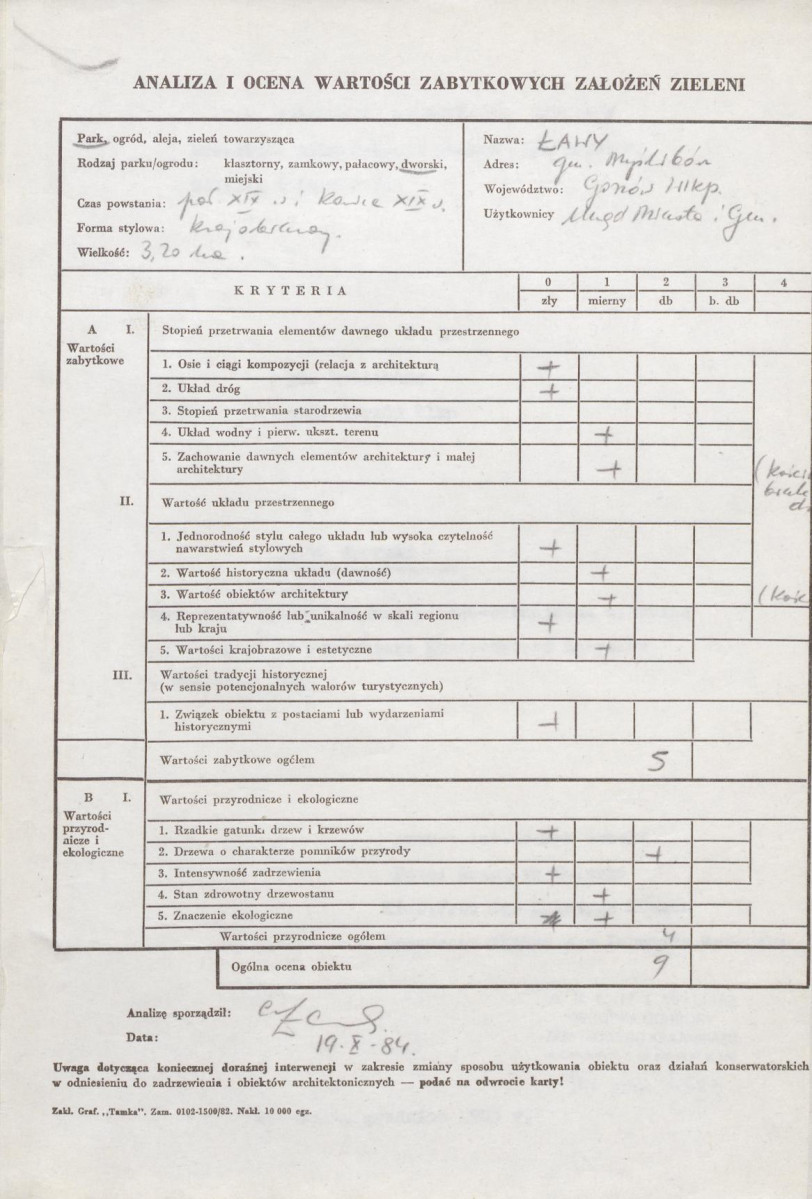 ANALIZA I OCENA WARTOŚCI ZABYTKOWYCH ZAŁOŻEŃ ZIELENI
Park, ogród, aleja, zieleń towarzysząca
Rodzaj parku/ogrodu: klasztorny, zamkowy, pałacowy, dworski,
miejski
Czas powstania: poł XIX w i koniec XIX w.
Forma stylowa: krajobrazowy.
Wielkość: 3,20 ha.
Nazwa: ŁAWY
Adres: gm. Myślibórz
Województwo: Gorzów Wlkp.
Użytkownicy Urząd Miasta i Gm.
KRYTERIA
0 1 2 3 4
zły mierny db b. db
A I. Stopień przetrwania elementów dawnego układu przestrzennego
Wartości
zabytkowe
1. Osie i ciągi kompozycji (relacja z architekturą +
2. Układ dróg +
3. Stopień przetrwania starodrzewia
4. Układ wodny i pierw. ukszt. terenu +
5. Zachowanie dawnych elementów architektury i małej
architektury +
II. Wartość układu przestrzennego
1. Jednorodność stylu całego układu lub wysoka czytelność
nawarstwień stylowych +
2. Wartość historyczna układu (dawność) +
3. Wartość obiektów architektury +
4. Reprezentatywność lub unikalność w skali regionu
lub kraju +
5. Wartości krajobrazowe i estetyczne +
III. Wartości tradycji historycznej
(w sensie potencjonalnych walorów turystycznych)
1. Związek obiektu z postaciami lub wydarzeniami
historycznymi +
Wartości zabytkowe ogółem 5
B I. Wartości przyrodnicze i ekologiczne
Wartości
przyrod-
nicze i
ekologiczne
1. Rzadkie gatunki drzew i krzewów +
2. Drzewa o charakterze pomników przyrody +
3. Intensywność zadrzewienia +
4. Stan zdrowotny drzewostanu +
5. Znaczenie ekologiczne +
Wartości przyrodnicze ogółem 4
Ogólna ocena obiektu 9
Analizę sporządził:
Data: 19.X-84.
Uwaga dotycząca koniecznej doraźnej interwencji w zakresie zmiany sposobu użytkowania obiektu oraz działań konserwatorskich
w odniesieniu do zadrzewienia i obiektów architektonicznych — podać na odwrocie karty!
Zakł. Graf. „Tamka". Zam. 0102-1500/82. Nakł. 10 000 egz.